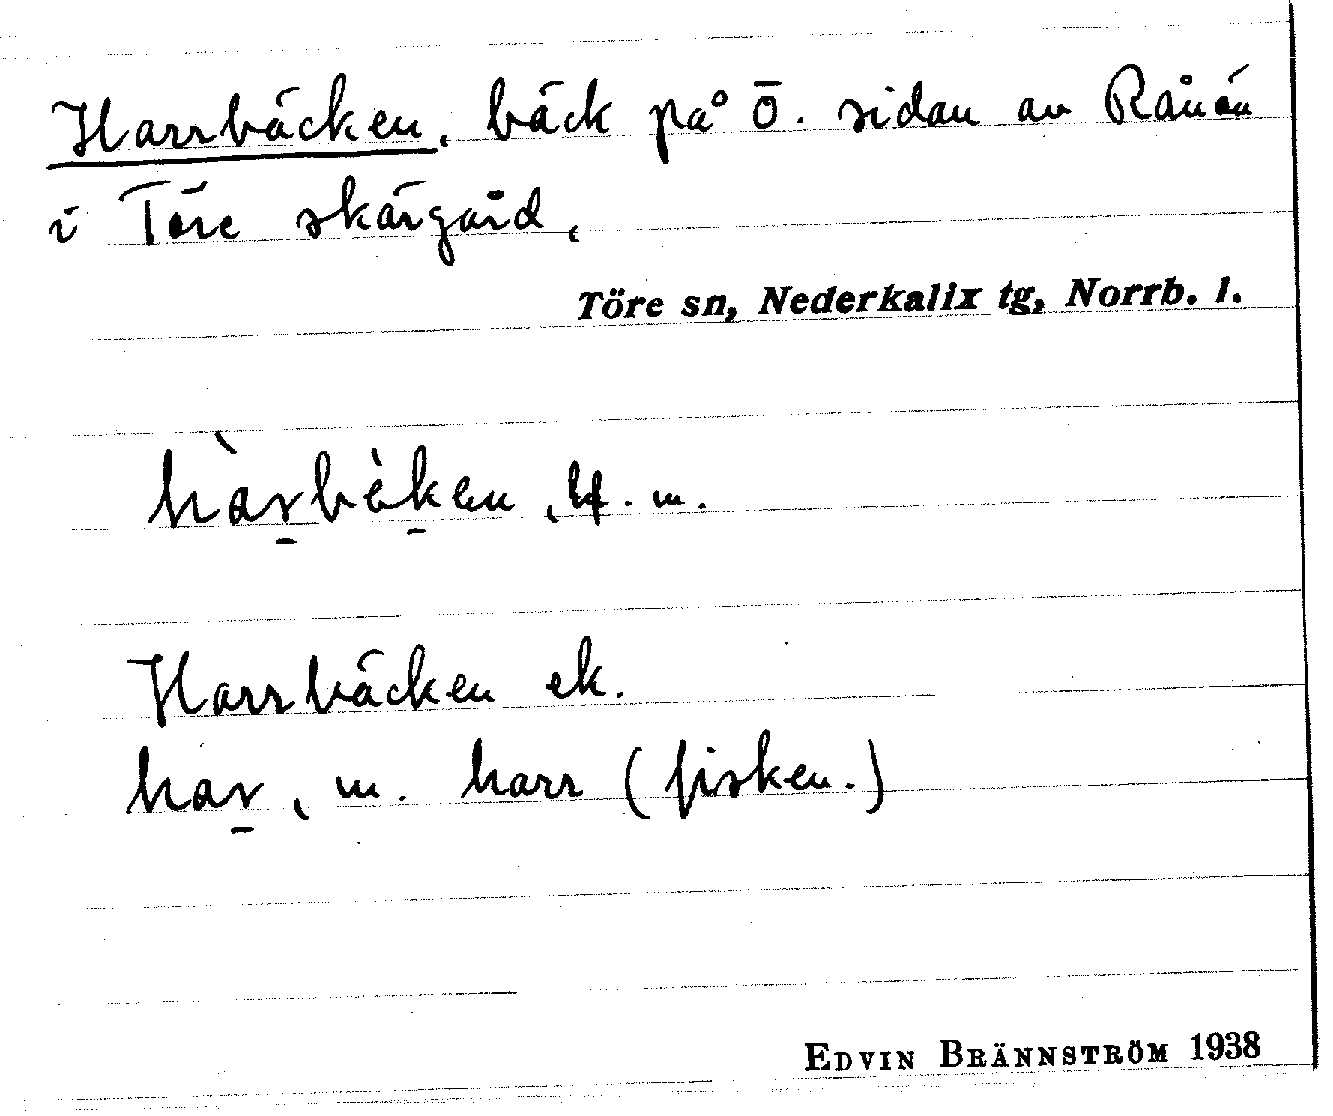 Harrbäcken, bäck på Ö. sidan av Rånön
i Töre skärgård,
Töre sn, Nederkalix tg, Norrb. l.
hàr̠bèk̠en, bf. m.
Harrbäcken ek.
har̠, m. harr (fisken.)
EDVIN BRÄNNSTRÖM 1938